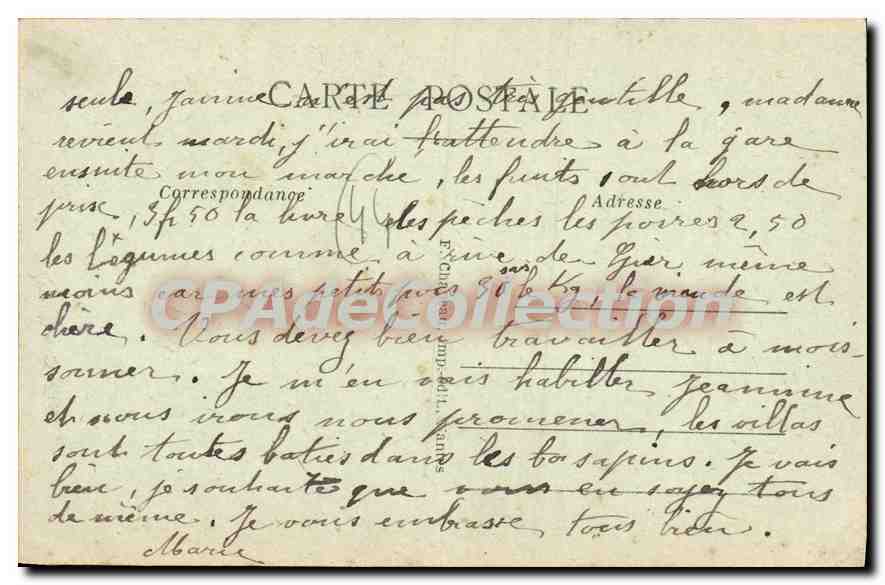 CARTE POSTALE
seule, Janine n'est pas très gentille, madame
revient mardi, j'irai l'attendre à la gare
ensuite mon marche, les fruits sont hors de
Correspondance
Adresse
prix, 3f 50 la livre les pèches les poires 2,50
(44
les légumes comme à rive de Gier même
moins car mes petits pois 90 sous le Kg, la viande est
chère. Vous devez bien travailler à mois-
sonner. Je m'en vais habiller Jeannine
et nous irons nous promener, les villas
sont toutes baties dans les bo sapins. Je vais
bien, je souhaite que vous en soyez tous
de même. Je vous embrasse tous bien.
Marie
F. Chapeau, imp.-édit., Nantes
CPAdeCollection.com